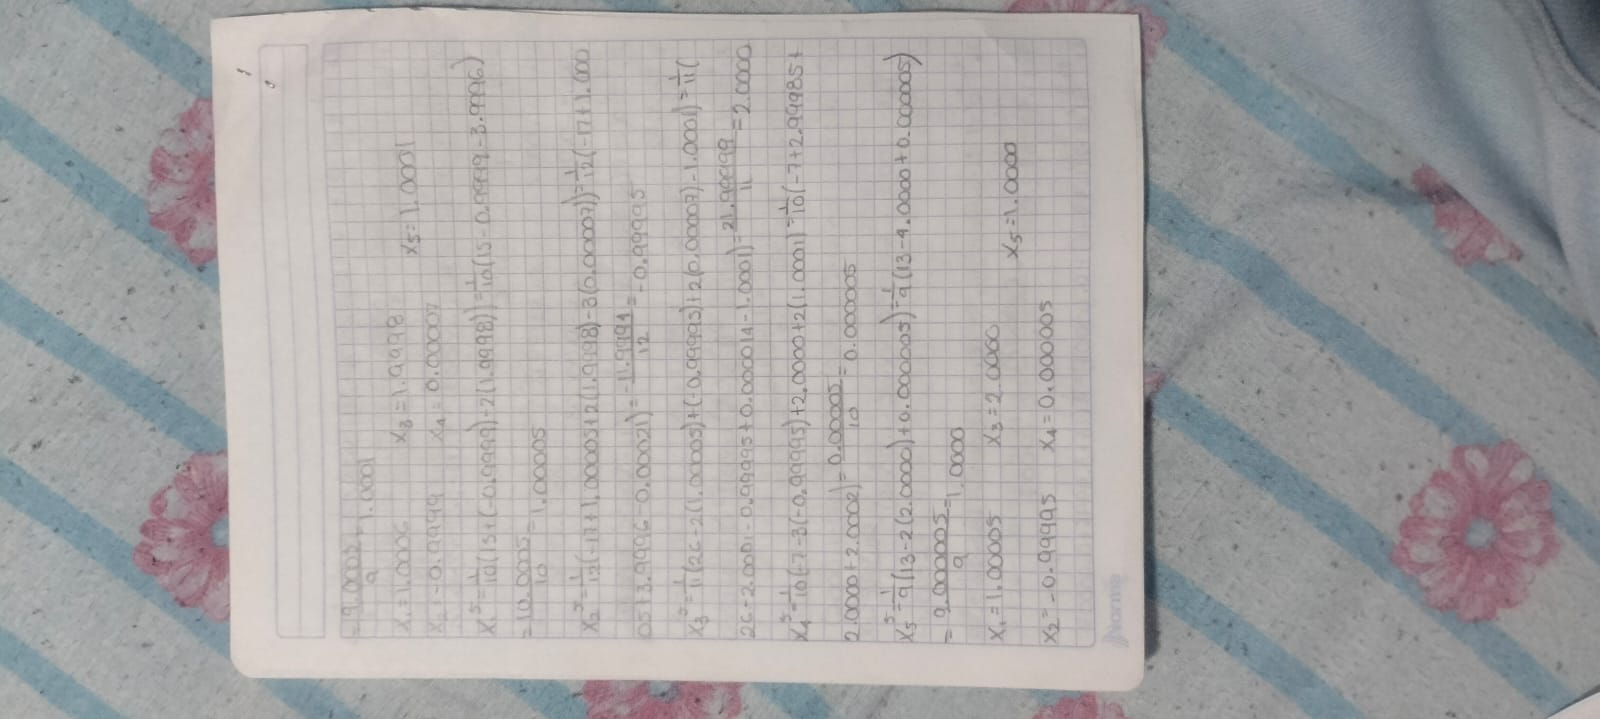 = 9.0005/9 = 1.0001
x₁ = 1.0006 x₃ = 1.9998 x₅ = 1.0001
x₂ = -0.9999 x₄ = 0.00007
x₁⁵ = 1/10 (13 + (-0.9999) - 2(1.9998)) = 1/10 (15 - 0.9999 - 3.9996)
= 10.0005/10 = 1.00005
x₂⁵ = 1/12 (-17 + 1.00005 + 2(1.9998) - 3(0.00007)) = 1/12 (-17 + 1.000
05 + 3.9996 - 0.00021) = -11.9994/12 = -0.99995
x₃⁵ = 1/11 (26 - 2(1.00005) + (-0.99995) + 2(0.00007) - 1.0001) = 1/11 (
26 - 2.0001 - 0.99995 + 0.000014 - 1.0001) = 21.99999/11 = 2.0000
x₄⁵ = 1/10 (-7 - 3(-0.99995) + 2.0000 + 2(1.0001)) = 1/10 (-7 + 2.99985 +
2.0000 + 2.0002) = 0.00005/10 = 0.000005
x₅⁵ = 1/9 (13 - 2(2.0000) + 0.000005) = 1/9 (13 - 4.0000 + 0.000005)
= 9.000005/9 = 1.0000
x₁ = 1.00005 x₃ = 2.0000 x₅ = 1.0000
x₂ = -0.99995 x₄ = 0.000005
Norma